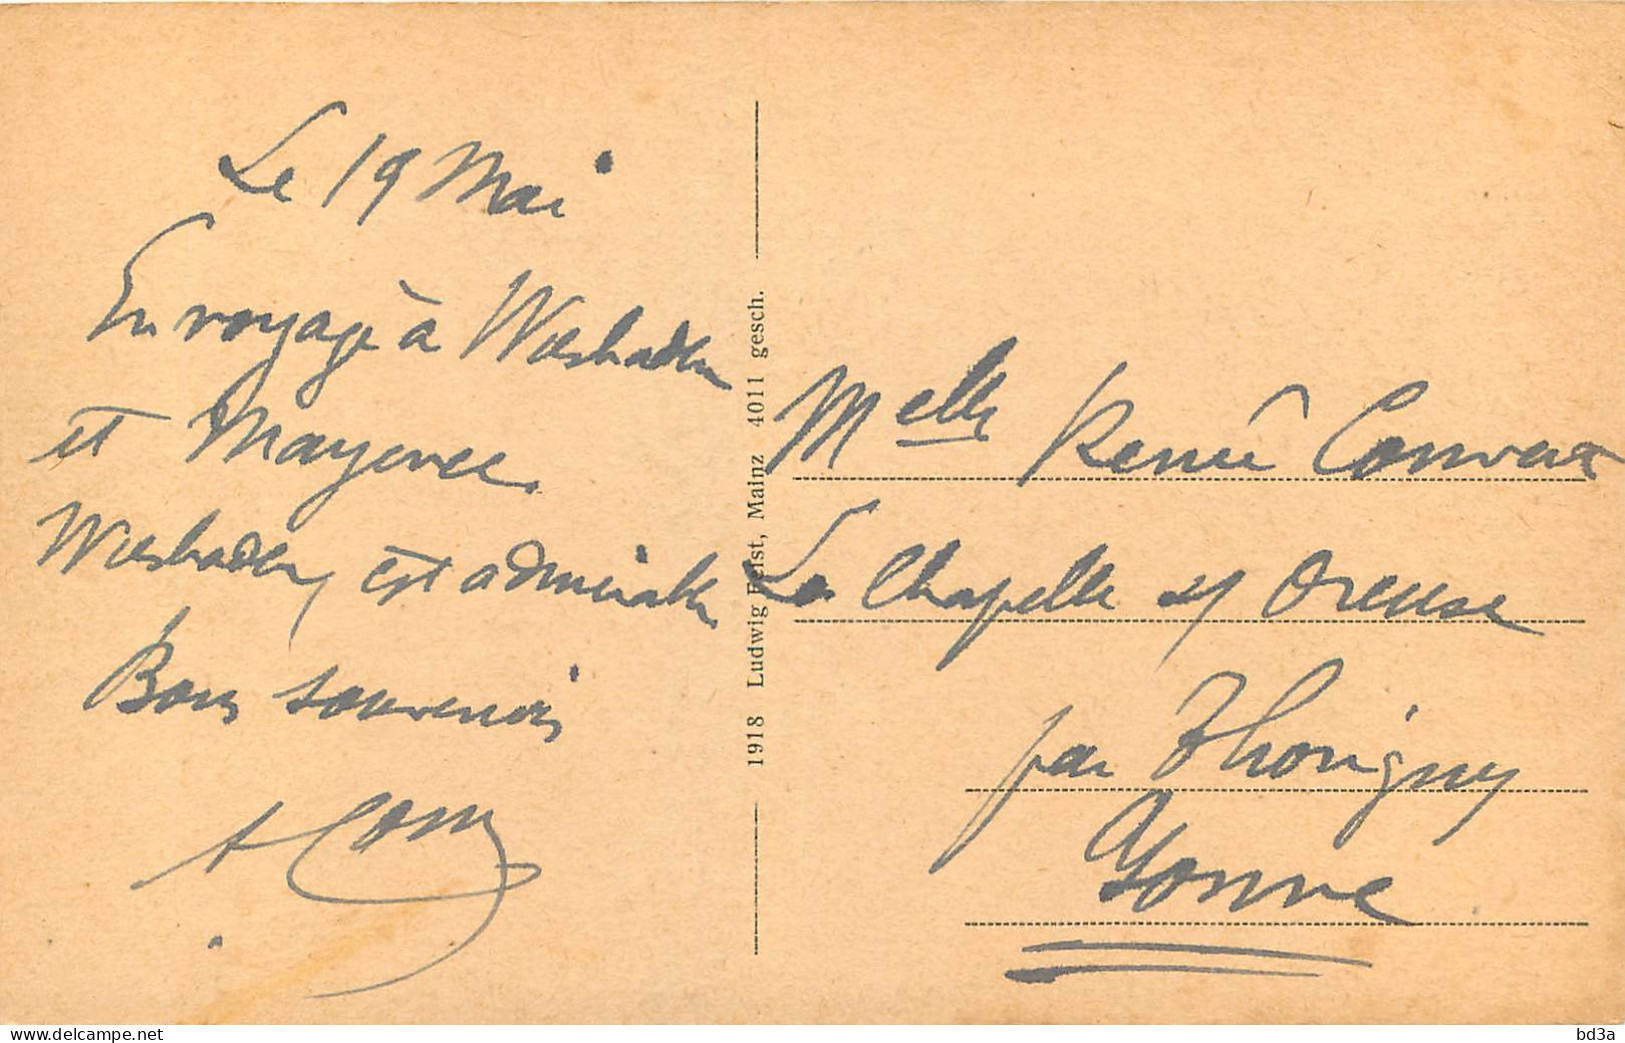 Le 19 Mai
En voyage à Wiesbaden
et Mayence.
Wiesbaden, est admirable
Bons souvenirs
1918 Ludwig Feist, Mainz 4011 gesch.
Melle Renée Convert
La Chapelle s/ Oreuse
par Thorigny
Yonne
www.delcampe.net
bd3a